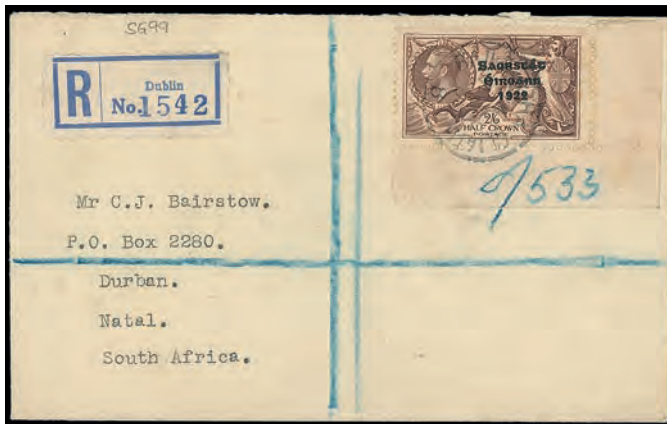 SG99
R
Dublin
No. 1542
Saorstát
Éireann
1922
2/6
HALF CROWN
POSTAGE
533
Mr C.J. Bairstow.
P.O. Box 2280.
Durban.
Natal.
South Africa.